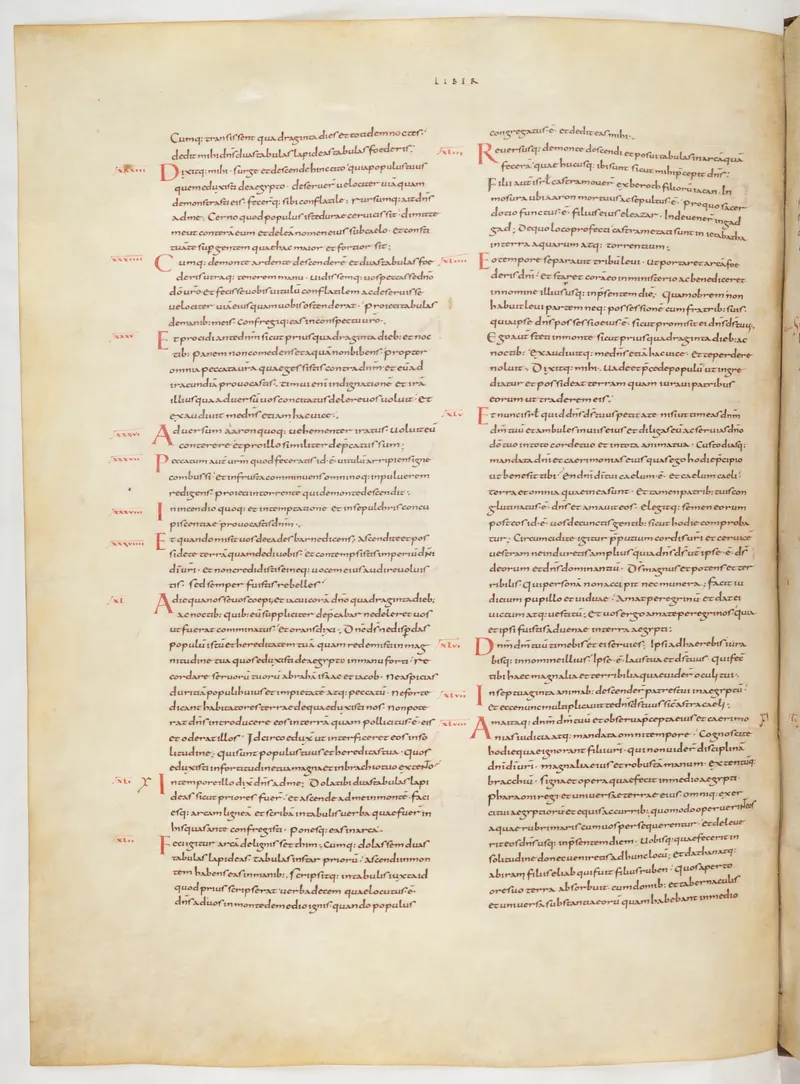 LIBER
Cumq; transissent quadraginta dies et totidem noctes.
dedit mihi dn̄s duas tabulas lapideas tabulas foederis.
Dixitq; mihi · surge et descende hinc cito quia populus tuus
quem eduxisti de aegypto · deseruer̄ velociter viā quam
demonstrasti eis · fecerq; sibi conflatile; rursumq; ait dn̄s
ad me · Cerno quod populus iste durae cervicis sit · dimitte
me ut conterā eum et deleā nomen eius sub caelo · et constituā
te sup gentem quae hac maior et fortior sit;
Cumq; de monte ardente descenderē et duas tabulas foe
deris utraq; tenerem manu · vidissemq; vos peccasse dn̄o
dō vr̄o et fecisse vobis vitulū conflatilem ac deseruisse
velociter viā eius quam vobis ostenderat · proieci tabulas
de manib; meis · Confregiq; eas in conspectu vr̄o ·
Et procidi ante dn̄m sicut prius quadraginta dieb; et noc
tib; panem non comedens et aquā non bibens · propter
omnia peccata vr̄a quae gessistis contra dn̄m et eū ad
iracundiā provocastis · timui enī indignationē et irā
illius qua adversū vos concitatus delere vos voluit · et
exaudivit me dn̄s etiam hac vice ·
Adversum aaron quoq; vehementer iratus voluit eū
conterere et pro illo similiter dep̄catus sum;
Peccatum aut̄ vr̄m quod feceratis id · ē · vitulū arripiens igne
combussi · et in frusta comminuens omninoq; in pulverem
redigens · proieci in torrentē qui de monte descendit ·
In incendio quoq; et in temptatione et in sepulchris concu
piscentiae provocastis dn̄m ·
Et quando misit vos de cades barne dicens · ascendite et pos
sidete terrā quam dedi vobis · et contempsistis imperiū dn̄i
dī vr̄i · et non credidistis ei neq; vocem eius audire voluis
tis · sed semper fuistis rebelles
A die qua nosse vos coepi; et iacui corā dn̄o quadraginta dieb;
ac noctib; quib; eū suppliciter dep̄cabar ne deleret vos
ut fuerat comminatus · et orans dixi · Dn̄e ds̄ ne disp̄das
populū istū et hereditatem tuā quam redemisti in mag
nitudine tua quos eduxisti de aegypto in manu forti · re
cordare servorū tuorū abrahā isaac et iacob · ne aspicias
duritiā populi huius et impietatē atq; peccatū · ne forte
dicant habitatores terrae de qua eduxisti nos · non pote
rat dn̄s introducere eos in terrā quam pollicitus · ē · eis
et oderat illos · Idcirco eduxit ut interficeret eos in so
litudine; qui sunt populus tuus et hereditas tua · quos
eduxisti in fortitudine tua magna et in brachio tuo extento
In tempore illo dix̄ dn̄s ad me; Dola tibi duas tabulas lapi
deas sicut priores fuer̄ · et ascende ad me in montē · faci
esq; arcam ligneā et scribā in tabulis verba quae fuer̄ in
his quas ante confregisti · Ponesq; eas in arca ·
Feci igitur arcā de lignis setthim; Cumq; dolassem duas
tabulas lapideas · tabulas instar priorū · ascendi in mon
tem habens eas in manib; · scripsitq; in tabulis iuxta id
quod prius scripserat verba decem quae locutus · ē ·
dn̄s ad vos in monte de medio ignis · quando populus
congregatus · ē · et dedit eas mihi ·
Reversusq; de monte descendi et posui tabulas in arcā quā
fecerā quae hucusq; ibi sunt sicut mihi p̄cepit dn̄s;
Filii aut̄ isrl̄ castra mover̄ ex beroth filiorū iacan · In
mosera ubi aaron mortuus ac sepultus · ē · pro quo sacer
dotio functus · ē · filius eius eleazar · Inde vener̄ in gad
gad; De quo loco profecti castrametati sunt in ietabatha
in terra aquarum atq; torrentium;
Eo tempore separavit tribū levi · ut portaret arcā foe
deris dn̄i · et staret corā eo in ministerio ac benediceret
in nomine illius usq; in p̄sentem diē; Quamobrem non
habuit levi partem neq; possessionē cum fratrib; suis ·
quia ipse dn̄s possessio eius · ē · sicut promisit ei dn̄s ds̄ tuus ·
Ego aut̄ steti in monte sicut prius quadraginta dieb; ac
noctib; · exaudivitq; me dn̄s etiā hac vice · et te perdere
noluit · Dixitq; mihi · Vade et p̄cede populū ut ingre
diatur et possideat terram quam iuravi patribus
eorum ut traderem eis ·
Et nunc isrl̄ quid dn̄s ds̄ tuus petit a te · nisi ut timeas dn̄m
dm̄ tuū et ambules in viis eius et diligas eū ac servias dn̄o
dō tuo in toto corde tuo et in tota anima tua · Custodiasq;
mandata dn̄i et caerimonias eius quas ego hodie p̄cipio
ut bene sit tibi · En dn̄i dī tui caelum · ē · et caelum caeli ·
terra et omnia quae in ea sunt · Et tamen patrib; tuis con
glutinatus · ē · dn̄s et amavit eos · elegitq; semen eorum
post eos id · ē · vos de cunctis gentib; sicut hodie comproba
tur; Circumcidite igitur p̄putium cordis vr̄i et cervicē
vestram ne induretis amplius quia dn̄s ds̄ vr̄ ipse · ē · ds̄
deorum et dn̄s dominantiū · Ds̄ magnus et potens et ter
ribilis · Qui personā non accipit nec munera; facit iu
dicium pupillo et viduae · Amat peregrinū et dat ei
victum atq; vestitū; Et vos ergo amate peregrinos quia
et ipsi fuistis advenae in terra aegypti;
Dn̄m dm̄ tuū timebis et ei servies; Ipsi adhaerebis iura
bisq; in nomine illius · Ipse · ē · laus tua et ds̄ tuus · qui fec̄
tibi haec magnalia et terribilia quae vider̄ oculi tui ·
In septuaginta animab; descender̄ patres tui in aegyptū ·
et ecce nunc multiplicavit te dn̄s ds̄ tuus sicut astra caeli ·
Ama itaq; dn̄m dm̄ tuū et observa p̄cepta eius et caerimo
nias iudicia atq; mandata omni tempore · Cognoscite
hodie quae ignorant filii vr̄i · qui non vider̄ disciplinā
dn̄i dī vr̄i · magnalia eius et robustā manum · extentūq;
bracchiū · signa et opera quae fecit in medio aegypti ·
pharaoni regi et universae terrae eius · omniq; exer
citui aegyptiorū et equis ac currib; · quomodo operuerint eos
aquae rubri maris cum vos persequerentur · et delever
rit eos dn̄s usq; in p̄sentem diem · Vobisq; quae fecerit in
solitudine donec veniretis ad hunc locū; et dathan atq;
abiram filiis eliab qui fuit filius ruben · Quos aperto
ore suo terra absorbuit · cum domib; et tabernaculis
et universā substantiā eorū quam habebant in medio